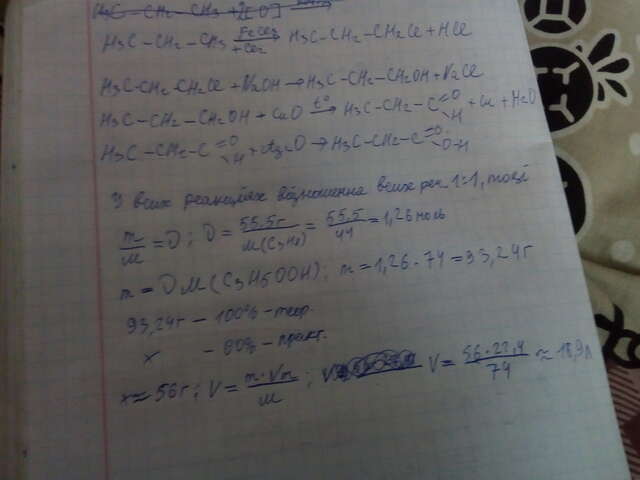 H₃C – CH₂ – CH₃ + 2[O]
H₃C – CH₂ – CH₃ FeCl₃ + Cl₂ → H₃C – CH₂ – CH₂Cl + HCl
H₃C – CH₂ – CH₂Cl + NaOH → H₃C – CH₂ – CH₂OH + NaCl
H₃C – CH₂ – CH₂OH + CuO t° → H₃C – CH₂ – C =O H + Cu + H₂O
H₃C – CH₂ – C =O H + Ag₂O → H₃C – CH₂ – C =O O-H
У всіх реакціях відношення всіх реч. 1:1, тоді
m/M = υ; υ = 55.5г/M(C₃H₈) = 55,5/44 = 1,26 моль
m = υM(C₂H₅OOH); m = 1,26 · 74 = 93,24 г
93,24г – 100% – теор.
x – 60% – практ.
x ≈ 56г; V = m·Vm/M; V = 56·22,4/74 ≈ 18,9л